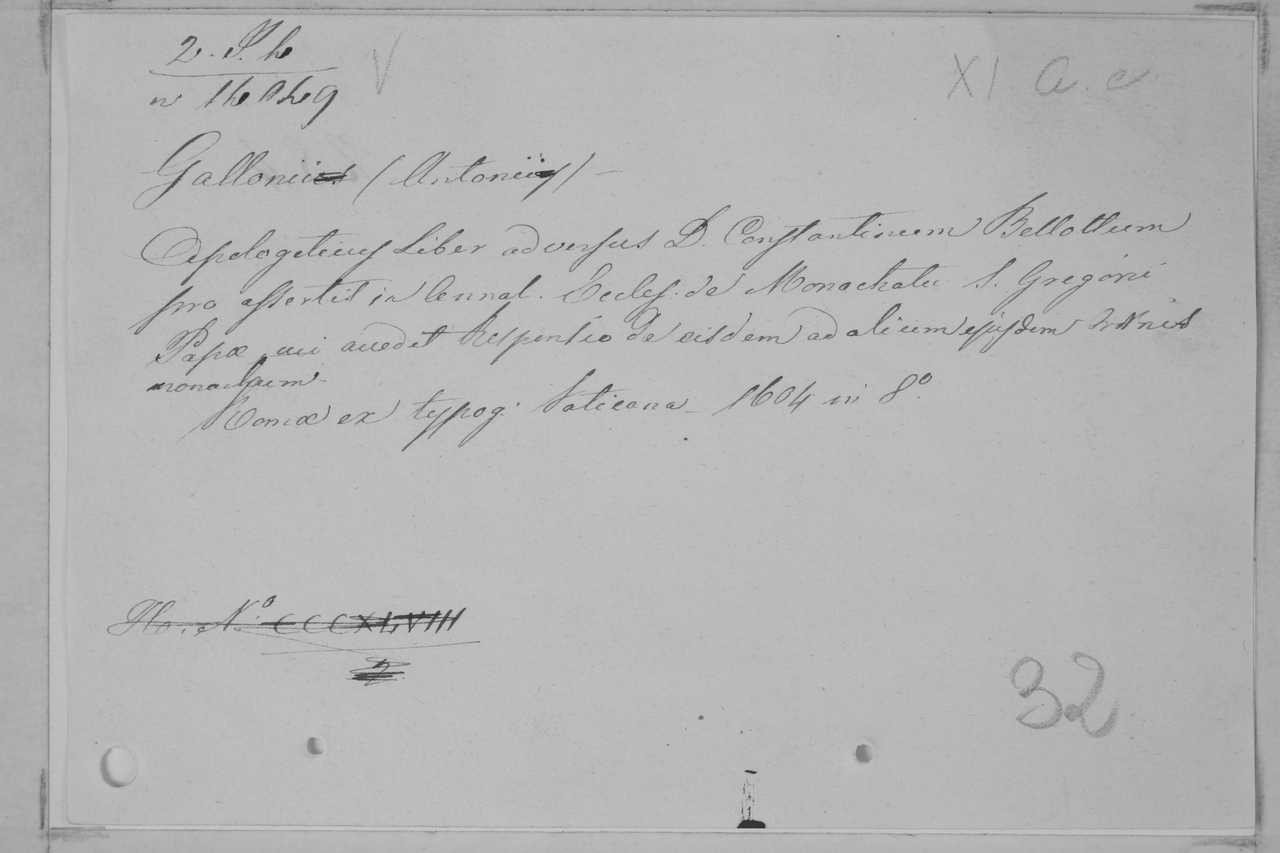 2. J. h
n 14049
V
XI a. c
Gallonii (Antonii) —
Apologeticus Liber adversus D. Constantinum Bellottum
pro assertis in Annal. Eccles. de Monachatu S. Gregorii
Papæ cui accedit Responsio de eisdem ad alium ejusdem Ordinis
monachum.
Romæ ex typog. Vaticana 1604 in 8º.
H. Nº CCCXLVIII
2
32